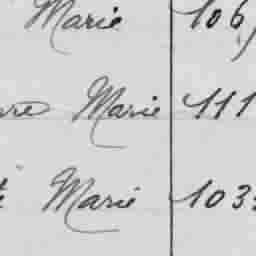 Marie 106
Marie 111
Marie 103